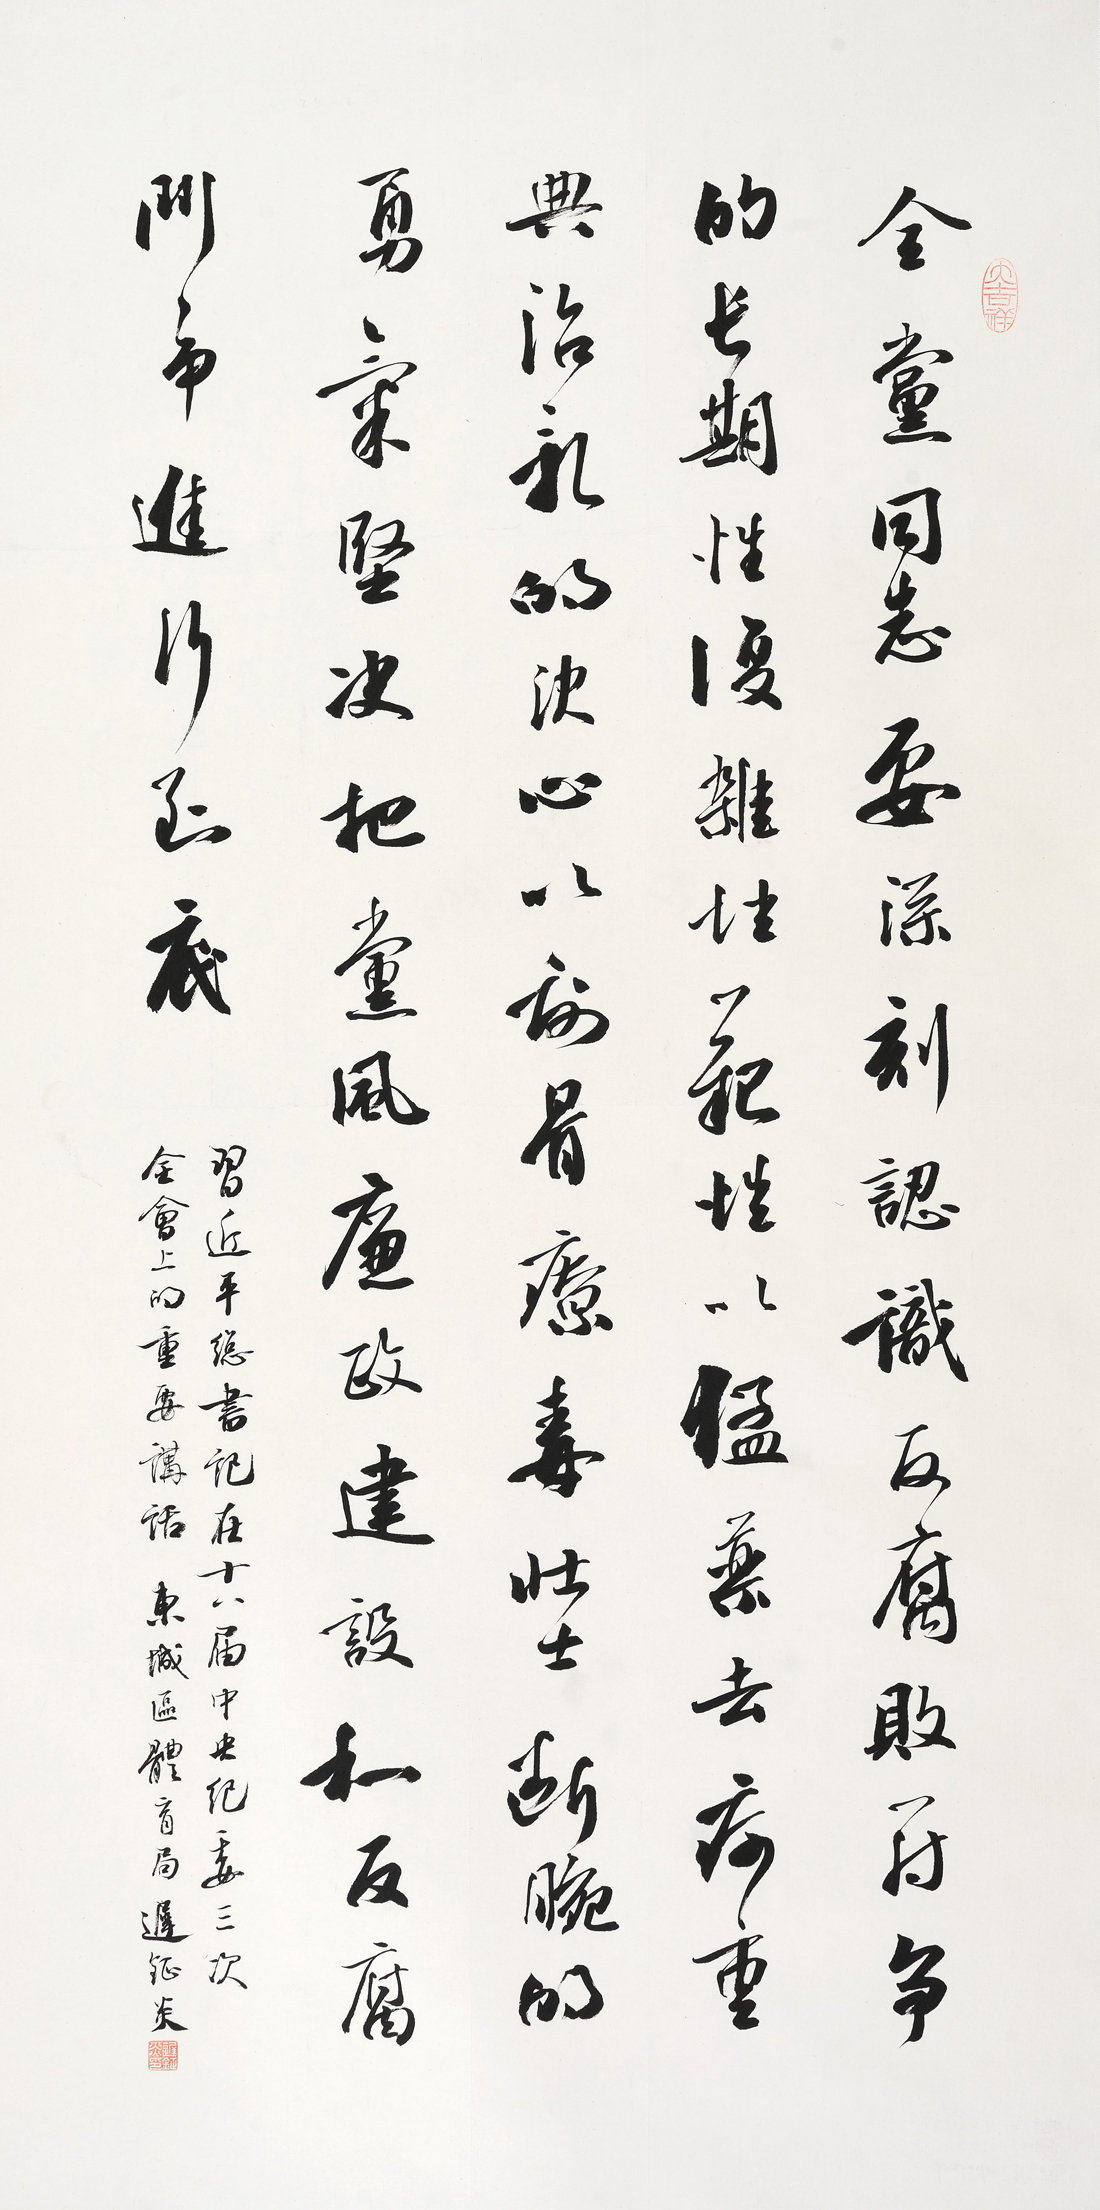 全黨同志要深刻認識反腐敗鬥争
的长期性復雜性艱艱性以猛藥去疴重
典治亂的決心以刮骨療毒壯士断腕的
勇氣堅决把黨風廉政建設和反腐
鬥争進行到底
習近平總書記在十八届中央纪委三次
全會上的重要講話 東城區體育局遲鉦炎
大吉祥